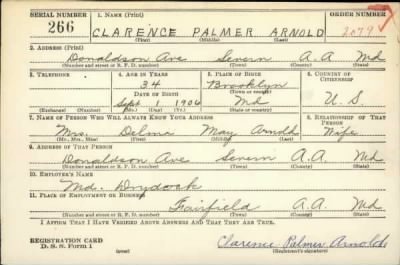 SERIAL NUMBER 1. NAME (Print) ORDER NUMBER
266 CLARENCE PALMER ARNOLD 2079
(First) (Middle) (Last)
2. ADDRESS (Print)
Donaldson Ave Severn A.A Md
(Number and street or R. F. D. number) (Town) (County) (State)
3. TELEPHONE 4. AGE IN YEARS 5. PLACE OF BIRTH 6. COUNTRY OF CITIZENSHIP
34 Brooklyn
DATE OF BIRTH (Town or county)
Sept 1 1906 Md U.S.
(Exchange) (Number) (Mo.) (Day) (Yr.) (State or country)
7. NAME OF PERSON WHO WILL ALWAYS KNOW YOUR ADDRESS 8. RELATIONSHIP OF THAT PERSON
Mrs. Delma May Arnold Wife
(Mr., Mrs., Miss) (First) (Middle) (Last)
9. ADDRESS OF THAT PERSON
Donaldson Ave Severn A.A. Md
(Number and street or R. F. D. number) (Town) (County) (State)
10. EMPLOYER'S NAME
Md. Drydock
11. PLACE OF EMPLOYMENT OR BUSINESS
Fairfield A.A. Md
(Number and street or R. F. D. number) (Town) (County) (State)
I AFFIRM THAT I HAVE VERIFIED ABOVE ANSWERS AND THAT THEY ARE TRUE.
REGISTRATION CARD
D. S. S. Form 1 (over) Clarence Palmer Arnold
(Registrant's signature)